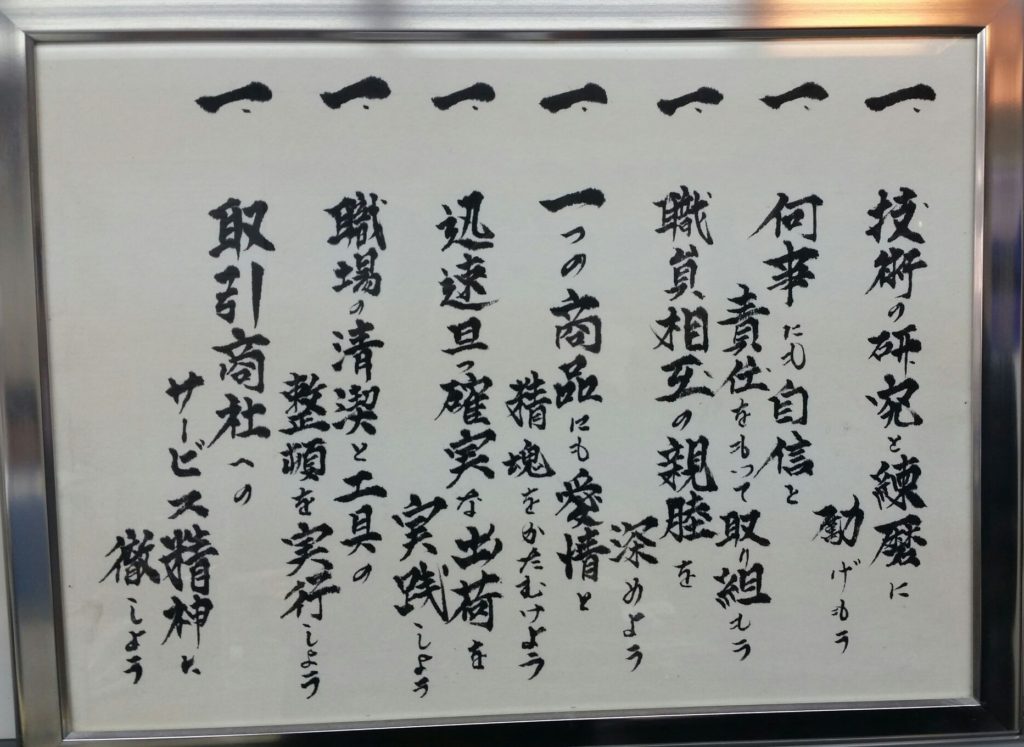 一、技術の研究と練磨に
励げもう
一、何事にも自信と
責任をもって取り組もう
一、職員相互の親睦を
深めよう
一、一つの商品にも愛情と
精魂をかたむけよう
一、迅速且つ確実な出荷を
実践しよう
一、職場の清潔と工具の
整頓を実行しよう
一、取引商社への
サービス精神に
徹しよう